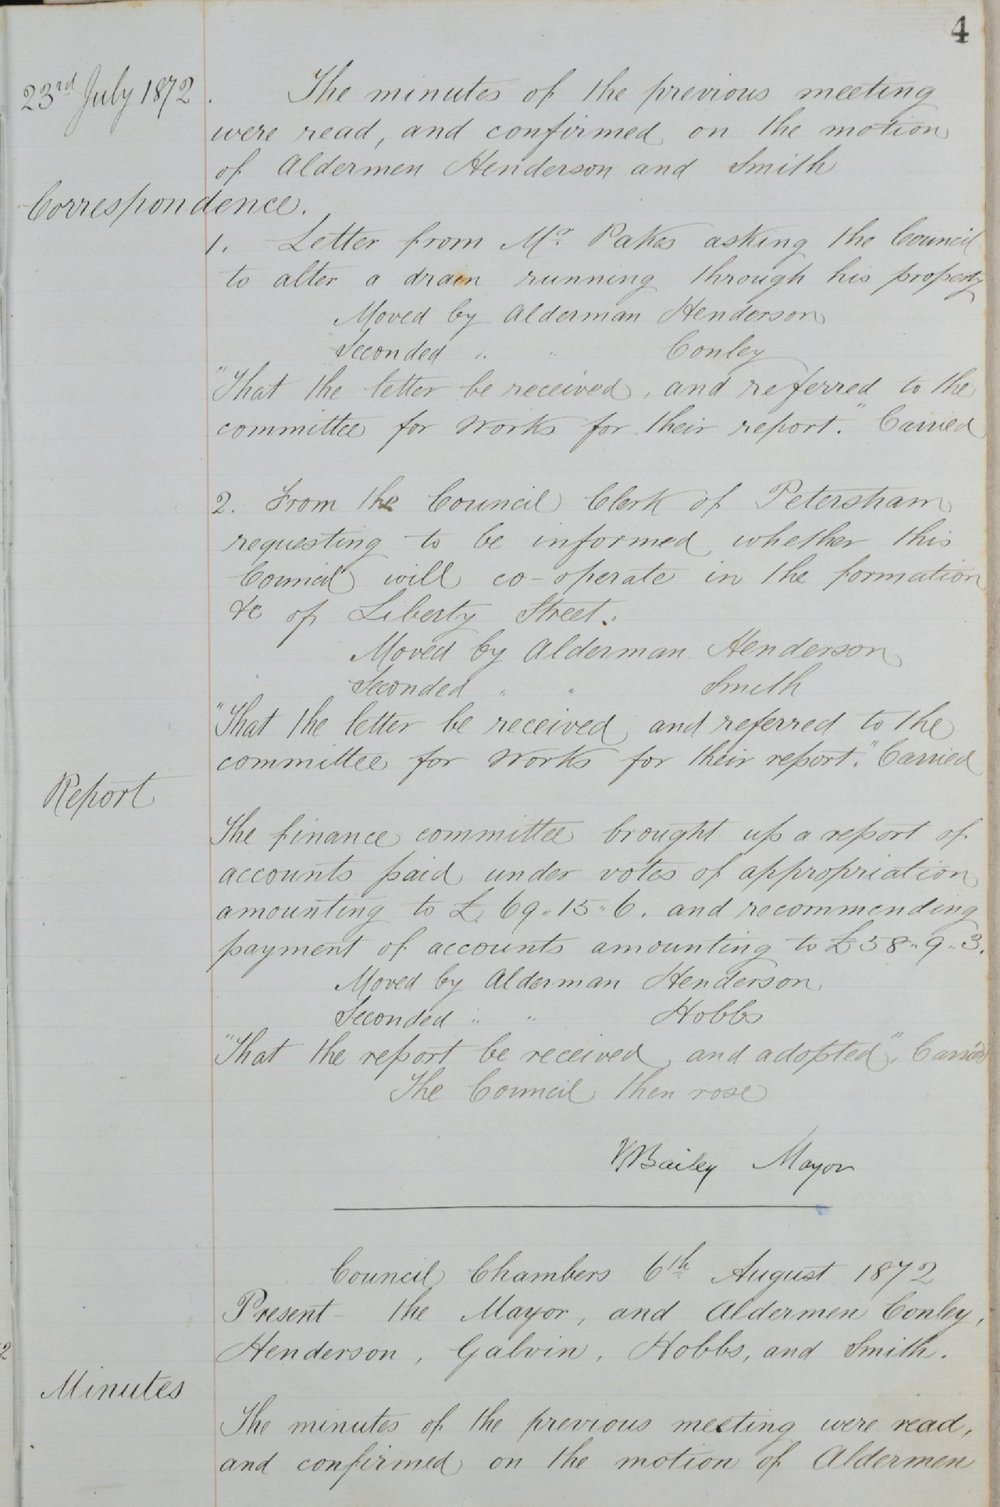 4
23rd July 1872. The minutes of the previous meeting
were read, and confirmed on the motion
of Aldermen Henderson and Smith
Correspondence.
1. Letter from Mr Pakes asking the Council
to alter a drain running through his property
Moved by Alderman Henderson
Seconded " " Conley
"That the letter be received, and referred to the
committee for Works for their report." Carried
2. From the Council Clerk of Petersham
requesting to be informed whether this
Council will co-operate in the formation
&c of Liberty Street.
Moved by Alderman Henderson
Seconded " " Smith
"That the letter be received and referred to the
committee for Works for their report." Carried
Report
The finance committee brought up a report of
accounts paid under votes of appropriation
amounting to £69"15"6. and recommending
payment of accounts amounting to £58"9"3.
Moved by Alderman Henderson
Seconded " " Hobbs
"That the report be received and adopted", Carried
The Council then rose
Bailey Mayor
Council Chambers 6th August 1872
Present the Mayor, and Aldermen Conley,
Henderson, Galvin, Hobbs, and Smith.
Minutes
The minutes of the previous meeting were read,
and confirmed on the motion of Aldermen